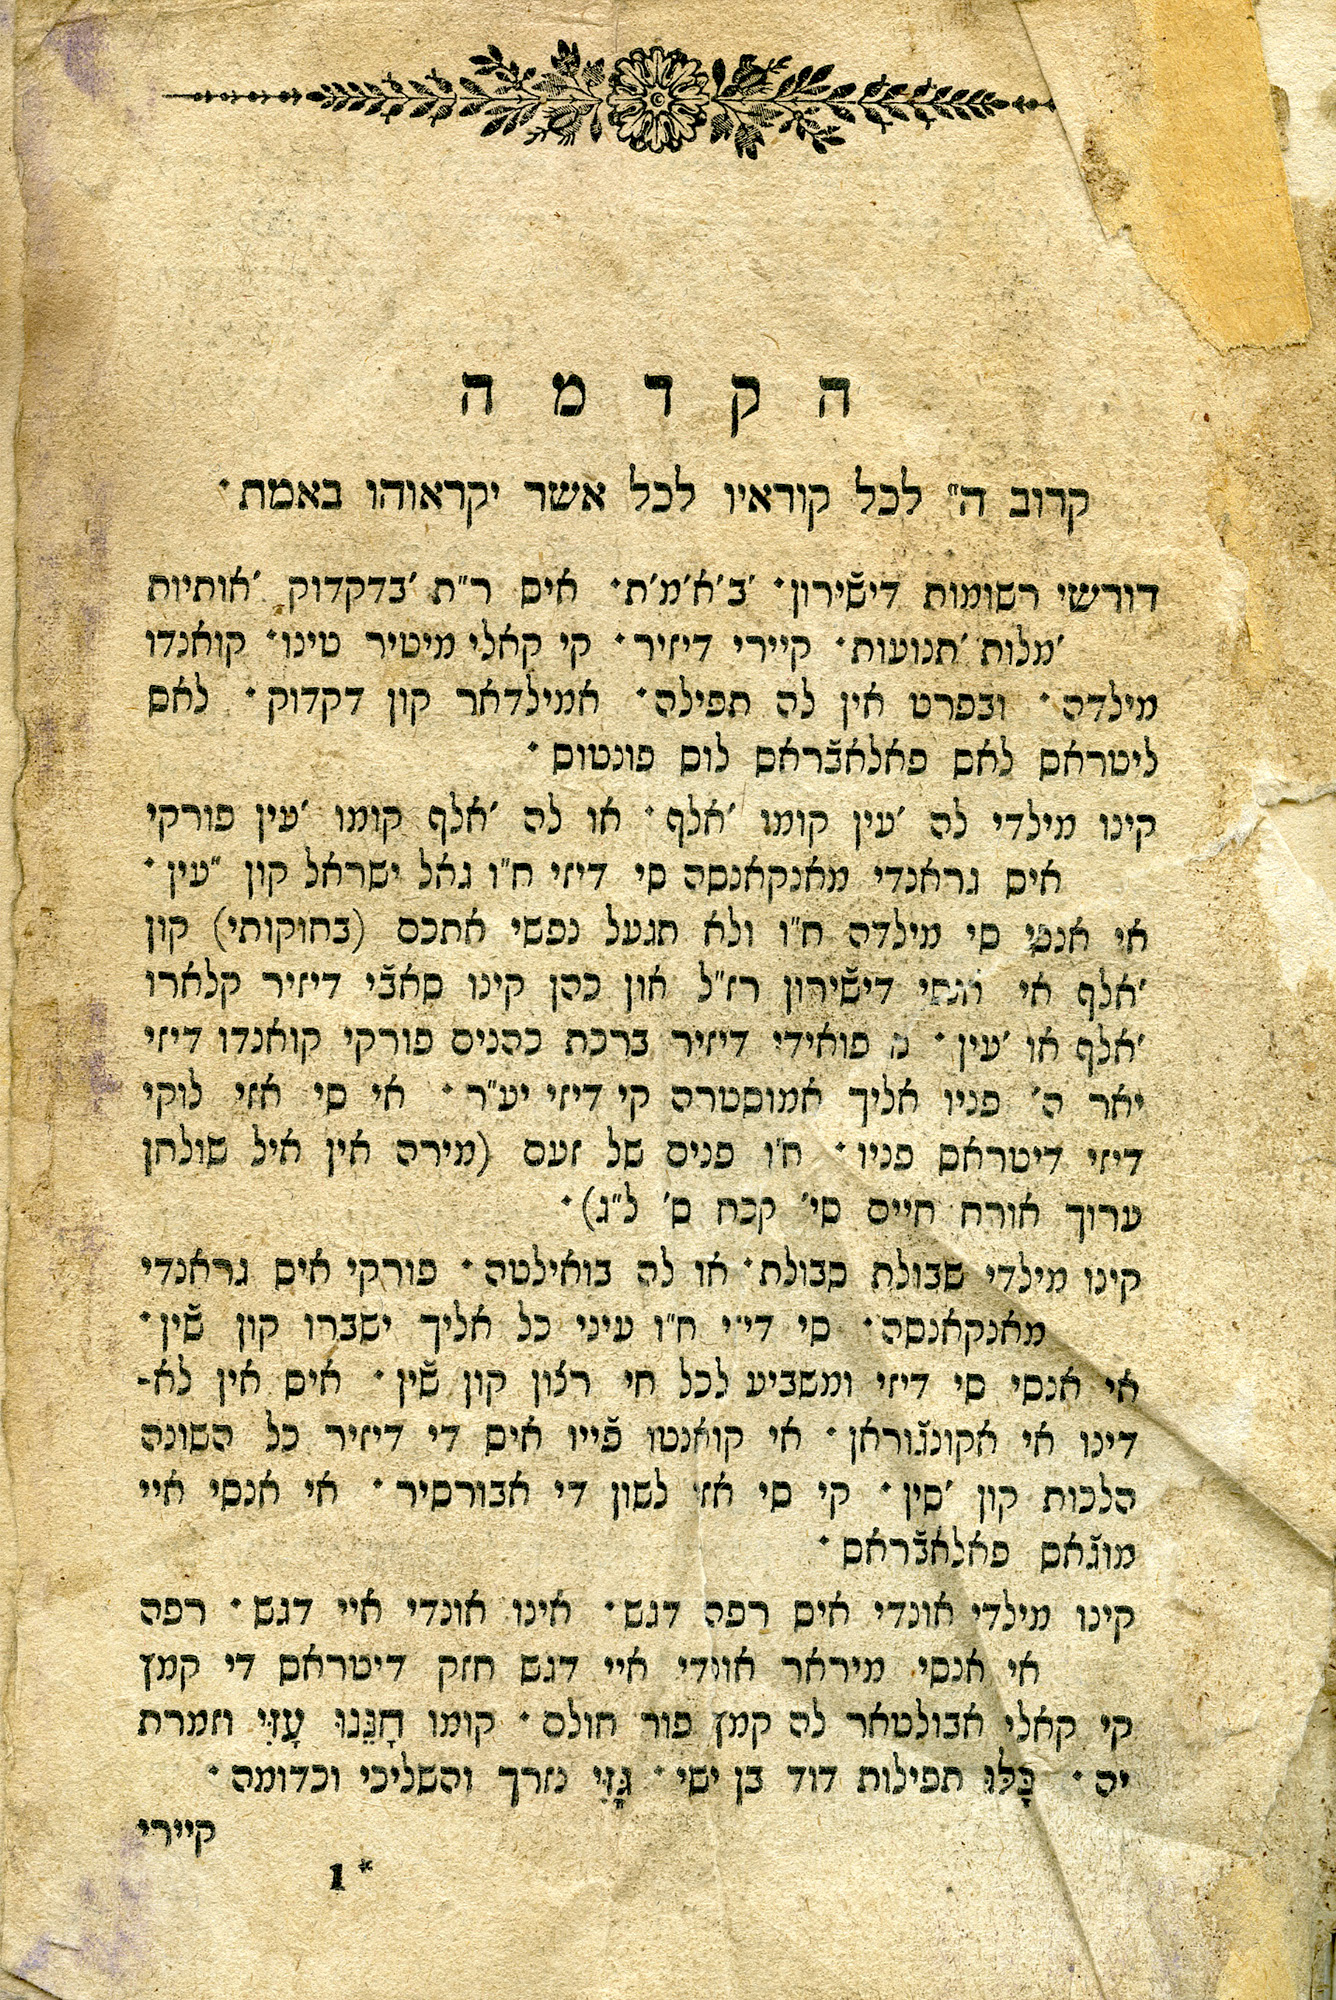 הקדמה
קרוב ה״ לכל קוראיו לכל אשר יקראוהו באמת׃
דורשי רשומות דישֿירון׃ ׳ב׳א׳מ׳ת׃ איס ר״ת ׳בדקדוק ׳אותיות
׳מלות ׳תנועות׃ קיירי דיזיר׃ קי קאלי מיטיר טינו׃ קואנדו
מילדה׃ ובפרט אין לה תפילה׃ אמילדאר קון דקדוק׃ לאס
ליטראס לאס פאלאבֿראס לוס פונטוס׃
קינו מילדי לה ׳עין קומו ׳אלף׃ או לה ׳אלף קומו ׳עין פורקי
איס גראנדי מאנקאנסה סי דיזי ח״ו גאל ישראל קון ״עין׃
אי אנסי סי מילדה ח״ו ולא תגעל נפשי אתכם (בחוקותי) קון
׳אלף אי אנסי דישֿירון רז״ל און כהן קינו סאבֿי דיזיר קלארו
׳אלף או ׳עין׃ פואידי דיזיר ברכת כהנים פורקי קואנדו דיזי
יאר ה׳ פניו אליך אמוסטרה קי דיזי יע״ר׃ אי סי אזי לוקי
דיזי דיטראס פניו׃ ח״ו פנים של זעם (מירה אין איל שולחן
ערוך אורח חיים סי׳ קכח ס׳ ל״ג)׃
קינו מילדי שבולת סבולת׃ או לה בואילטה׃ פורקי איס גראנדי
מאנקאנסה׃ סי דיזי ח״ו עיני כל אליך ישברו קון שֿין׃
אי אנסי סי דיזי ומשביע לכל חי רצון קון שֿין׃ איס אין לא־
דינו אי אקונגֿוראן׃ אי קואנטו פֿייו איס די דיזיר כל השונה
הלכות קון ׳סין׃ קי סי אזי לשון די אבורסיר׃ אי אנסי איי
מוגֿאס פאלאבֿראס׃
קינו מילדי אונדי איס רפה דגש׃ אינו אונדי איי דגש׃ רפה
אי אנסי מיראר אונדי איי דגש חזק דיטראס די קמץ
קי קאלי אבולטאר לה קמץ פור חולם׃ קומו חָנֵּנוּ עָזִּי וזמרת
יה׃ כָּלּוּ תפילות דוד בן ישי׃ גָּזִּי נזרך והשליכי וכדומה׃
קיירי
1*